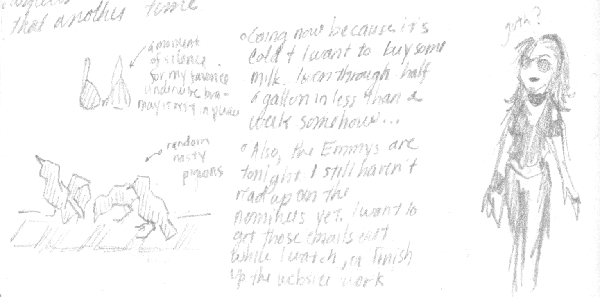 that another time
a moment
of silence
for my favorite
underwire bra -
may it rest in peace
random
nosy
pigeons
Going now because it's
cold & I want to buy some
milk. I went through half
a gallon in less than a
week somehow...
Also, the Emmys are
tonight. I still haven't
read up on the
nominees yet. I want to
get those emails out
while I watch, or finish
up the website work
goth?